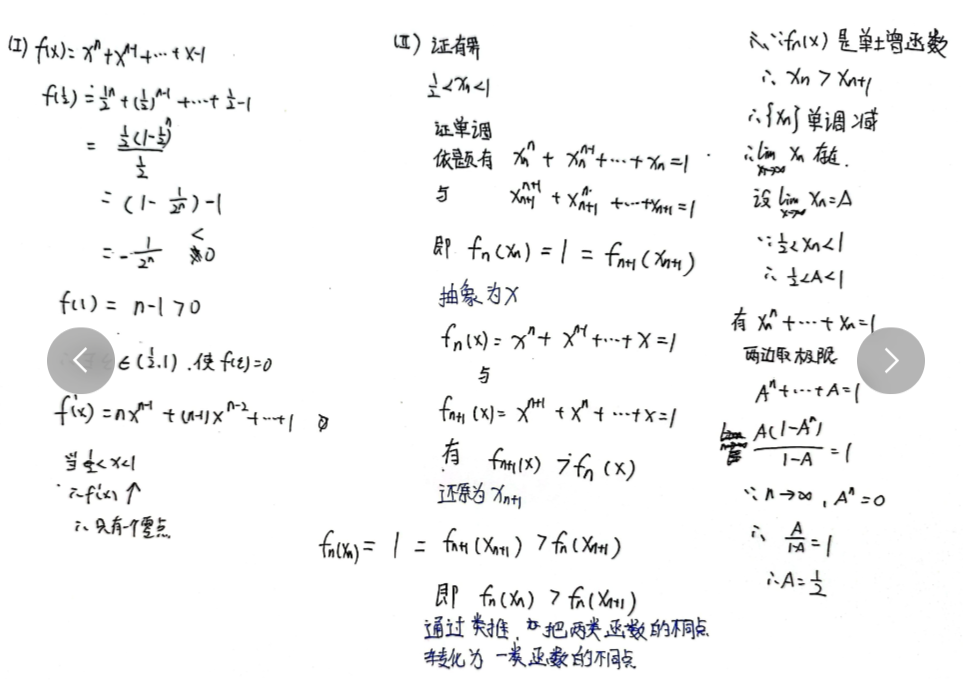 (I) f(x)= xⁿ+xⁿ⁻¹+⋯+x-1
f(½)=½ⁿ+(½)ⁿ⁻¹+⋯+½-1
= ½(1-½)ⁿ / ½
= (1- 1/2ⁿ)-1
= -1/2ⁿ < 0
f(1) = n-1>0
∈(½,1).使f(ξ)=0
f'(x)=nxⁿ⁻¹+(n-1)xⁿ⁻²+⋯+1
当½<x<1
∴f(x)↑
∴只有一个零点
(II) 证有界
½<xₙ<1
证单调
依题有 xₙⁿ+xₙⁿ⁻¹+⋯+xₙ=1
与 xₙ₊₁ⁿ⁺¹+xₙ₊₁ⁿ+⋯+xₙ₊₁=1
即 fₙ(xₙ)=1=fₙ₊₁(xₙ₊₁)
抽象为x
fₙ(x)=xⁿ+xⁿ⁻¹+⋯+x=1
与
fₙ₊₁(x)=xⁿ⁺¹+xⁿ+⋯+x=1
有 fₙ₊₁(x)>fₙ(x)
还原为xₙ₊₁
fₙ(xₙ)=1=fₙ₊₁(xₙ₊₁)>fₙ(xₙ₊₁)
即 fₙ(xₙ)>fₙ(xₙ₊₁)
通过类推,把两类函数的不同点
转化为一类函数的不同点
∵fₙ(x)是单增函数
∴xₙ>xₙ₊₁
∴{xₙ}单调减
∴lim xₙ存在.
n→∞
设lim xₙ=A
x→∞
∵½<xₙ<1
∴½<A<1
有xₙⁿ+⋯+xₙ=1
两边取极限
Aⁿ+⋯+A=1
A(1-Aⁿ)/1-A =1
∵n→∞,Aⁿ=0
∴ A/1-A =1
∴A=½